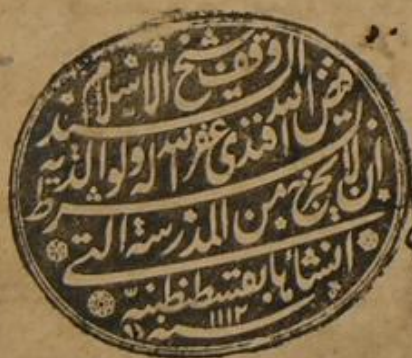 وقف شيخ الاسلام
السيد فيض الله
افندى غفر الله له ولوالديه
بشرط ان لا يخرج من المدرسة التى
انشاها بقسطنطنيه
سنه ١١١٢